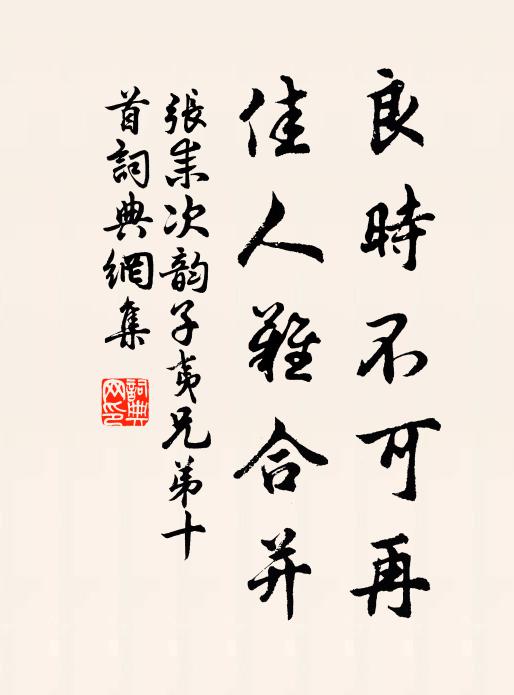 良時不可再
佳人難合并
張耒次韵子夷兄弟十
首詞典網集
詞典網印